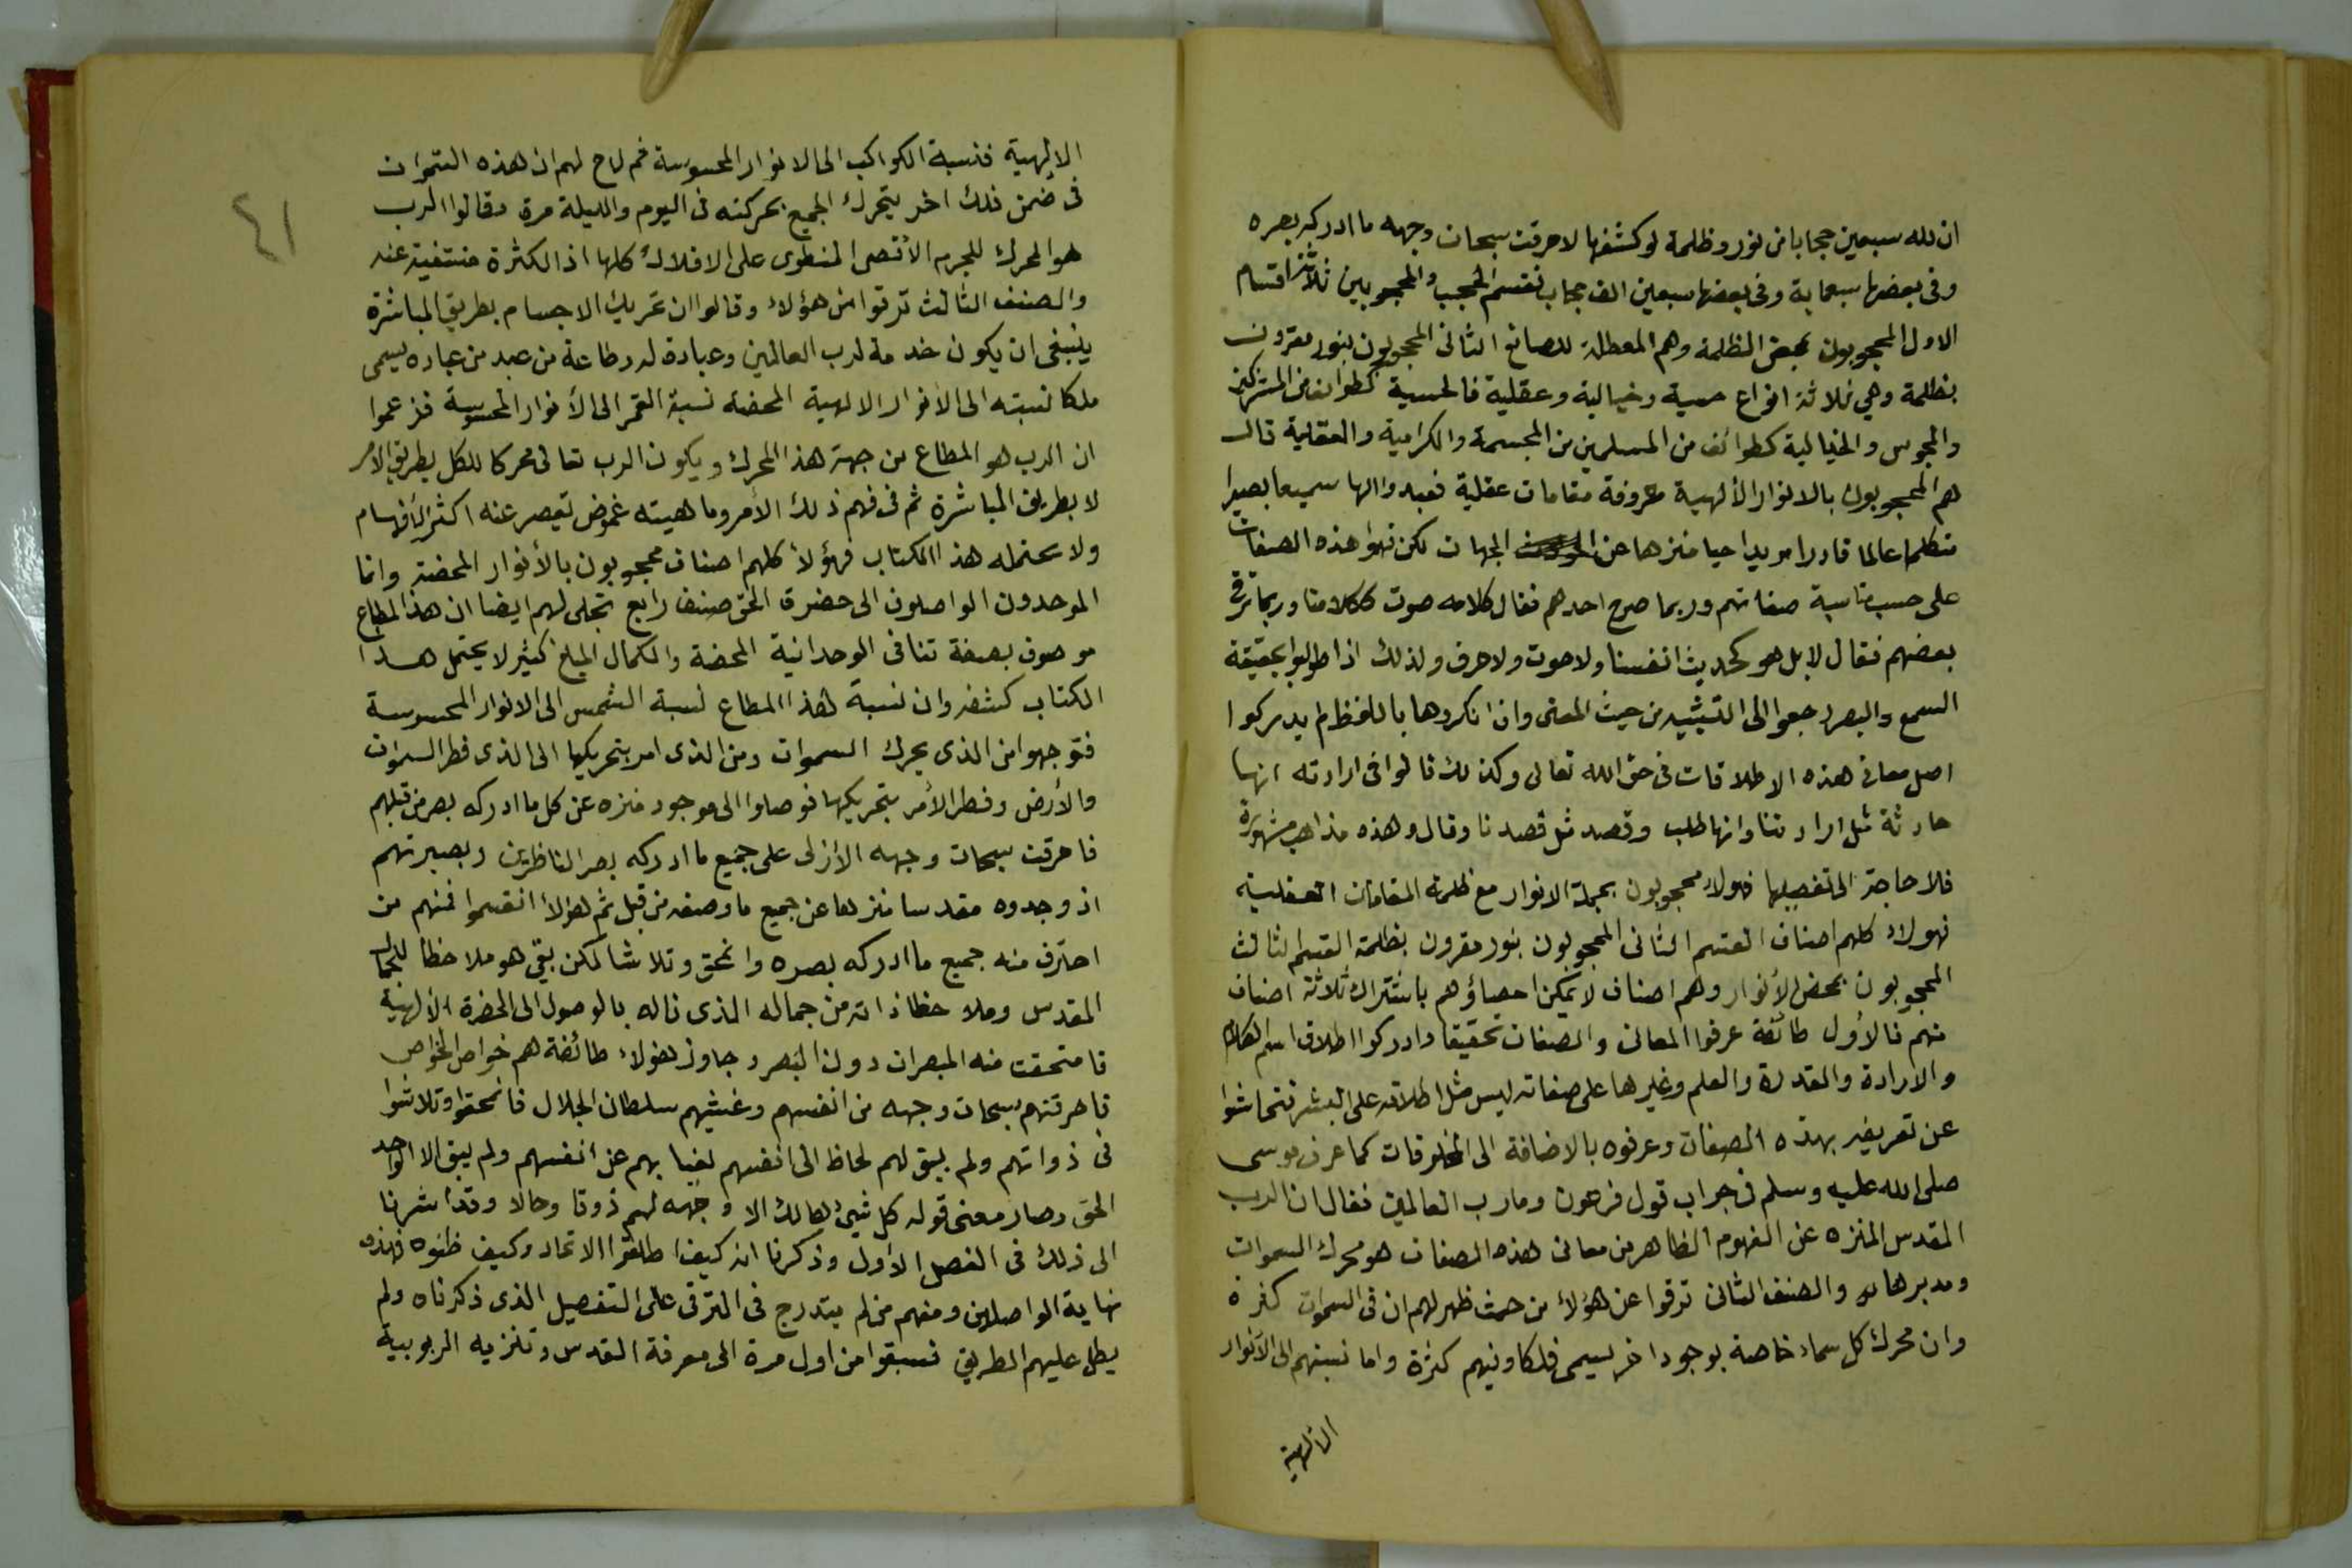 ان لله سبعين حجابا من نور وظلمة لو كشفها لاحرقت سبحات وجهه ما ادركه بصره
وفى بعضها سبعماية وفى بعضها سبعين الف حجاب نقسم الحجب والمحجوبين ثلاثة اقسام
الاول المحجوبون بمحض الظلمة وهم المعطلة للصانع الثانى المحجوبون بنور مقرون
بظلمة وهي ثلاثة انواع حسية وخيالية وعقلية فالحسية كطوائف من المشركين
والمجوس والخيالية كطوائف من المسلمين من المجسمة والكرامية والعقلية قال
هم المحجوبون بالانوار الألهية معروفة مقامات عقلية فعبدوا الها سميعا بصيرا
متكلما عالما قادرا مريدا حيا منزها عن الجهات لكن فهموا هذه الصفات
على حسب مناسبة صفاتهم وربما صرح احدهم فقال كلامه صوت ككلامنا وربما ترقى
بعضهم فقال لا بل هو كحديث انفسنا ولا صوت ولا حرف ولذلك اذا طولبوا بحقيقة
السمع والبصر رجعوا الى التشبيه من حيث المعنى وان انكروها باللفظ لم يدركوا
اصل معانى هذه الاطلاقات فى حق الله تعالى وكذلك قالوا فى ارادته انها
حادثة مثل ارادتنا وانها طلب وقصد مثل قصدنا وقال وهذه مذاهب مشهورة
فلا حاجة الى تفصيلها فهولاء محجوبون بجملة الانوار مع ظلمة المقامات العقلية
فهولاء كلهم اصناف القسم الثانى المحجوبون بنور مقرون بظلمة القسم الثالث
المحجوبون بمحض الأنوار وهم اصناف لا يمكن احصاؤهم باشتراك ثلاثة اصناف
منهم فالأول طائفة عرفوا المعانى والصفات تحقيقا وادركوا اطلاق اسم الكلام
والارادة والقدرة والعلم وغيرها على صفاته ليس مثل اطلاقه على البشر فتحاشوا
عن تعريفه بهذه الصفات وعرفوه بالاضافة الى المخلوقات كما عرف موسى
صلى الله عليه وسلم فى جواب قول فرعون وما رب العالمين فقال ان الرب
المقدس المنزه عن المفهوم الظاهر من معانى هذه الصفات هو محرك السموات
ومدبرها والصنف الثانى ترقوا عن هؤلاء من حيث ظهر لهم ان فى السموات كثرة
وان محرك كل سماء خاصة بوجود اخر يسمى فلكا وفيهم كثرة واما نسبتهم الى الأنوار
الالهية
٤١
الالهية فنسبة الكواكب الى الانوار المحسوسة ثم لاح لهم ان هذه السموات
فى ضمن فلك اخر يتحرك الجميع بحركته فى اليوم والليلة مرة وقالوا الرب
هو المحرك للجرم الأقصى المنطوى على الافلاك كلها اذ الكثرة منتفية عنه
والصنف الثالث ترقوا من هؤلاء وقالوا ان تحريك الاجسام بطريق المباشرة
ينبغى ان يكون خدمة لرب العالمين وعبادة له وطاعة من عبد من عباده يسمى
ملكا نسبته الى الأنوار الالهية المحضة نسبة القمر الى الأنوار المحسوسة فزعموا
ان الرب هو المطاع من جهة هذا المحرك ويكون الرب تعالى محركا للكل بطريق الأمر
لا بطريق المباشرة ثم فى فهم ذلك الأمر وماهيته غموض تقصر عنه اكثر الأفهام
ولا يحتمله هذا الكتاب فهؤلاء كلهم اصناف محجوبون بالأنوار المحضة وانما
الموحدون الواصلون الى حضرة الحق صنف رابع تجلى لهم ايضا ان هذا المطاع
موصوف بصفة تنافى الوحدانية المحضة والكمال البليغ كثير لا يحتمل هذا
الكتاب كشفه وان نسبة هذا المطاع نسبة الشمس الى الانوار المحسوسة
فتوجهوا من الذى يحرك السموات ومن الذى امر بتحريكها الى الذى فطر السموات
والأرض وفطر الأمر بتحريكها فوصلوا الى موجود منزه عن كل ما ادركه بصر من قبلهم
فاحرقت سبحات وجهه الأزلى على جميع ما ادركه بصر الناظرين وبصيرتهم
اذ وجدوه مقدسا منزها عن جميع ما وصفه من قبل ثم هؤلاء انقسموا فمنهم من
احترق منه جميع ما ادركه بصره وانمحق وتلاشا لكن بقى هو ملاحظا للجمال
المقدس وملاحظا ذاته من جماله الذى ناله بالوصول الى الحضرة الألهية
فامتحقت منه المبصرات دون البصر وجاوز هؤلاء طائفة هم خواص الخواص
فاحرقتهم سبحات وجهه من انفسهم وغشيهم سلطان الجلال فانمحقوا وتلاشوا
فى ذواتهم ولم يبق لهم لحاظ الى انفسهم لغيابهم عن انفسهم ولم يبق الا الواحد
الحق وصار معنى قوله كل شئ هالك الا وجهه لهم ذوقا وحالا وقد اشرنا
الى ذلك فى الفصل الأول وذكرنا انه كيف اطلقوا الاتحاد وكيف ظنوه فهذه
نهاية الواصلين ومنهم من لم يتدرج فى الترقى على التفصيل الذى ذكرناه ولم
يطل عليهم الطريق فسبقوا من اول مرة الى معرفة القدس وتنزيه الربوبية